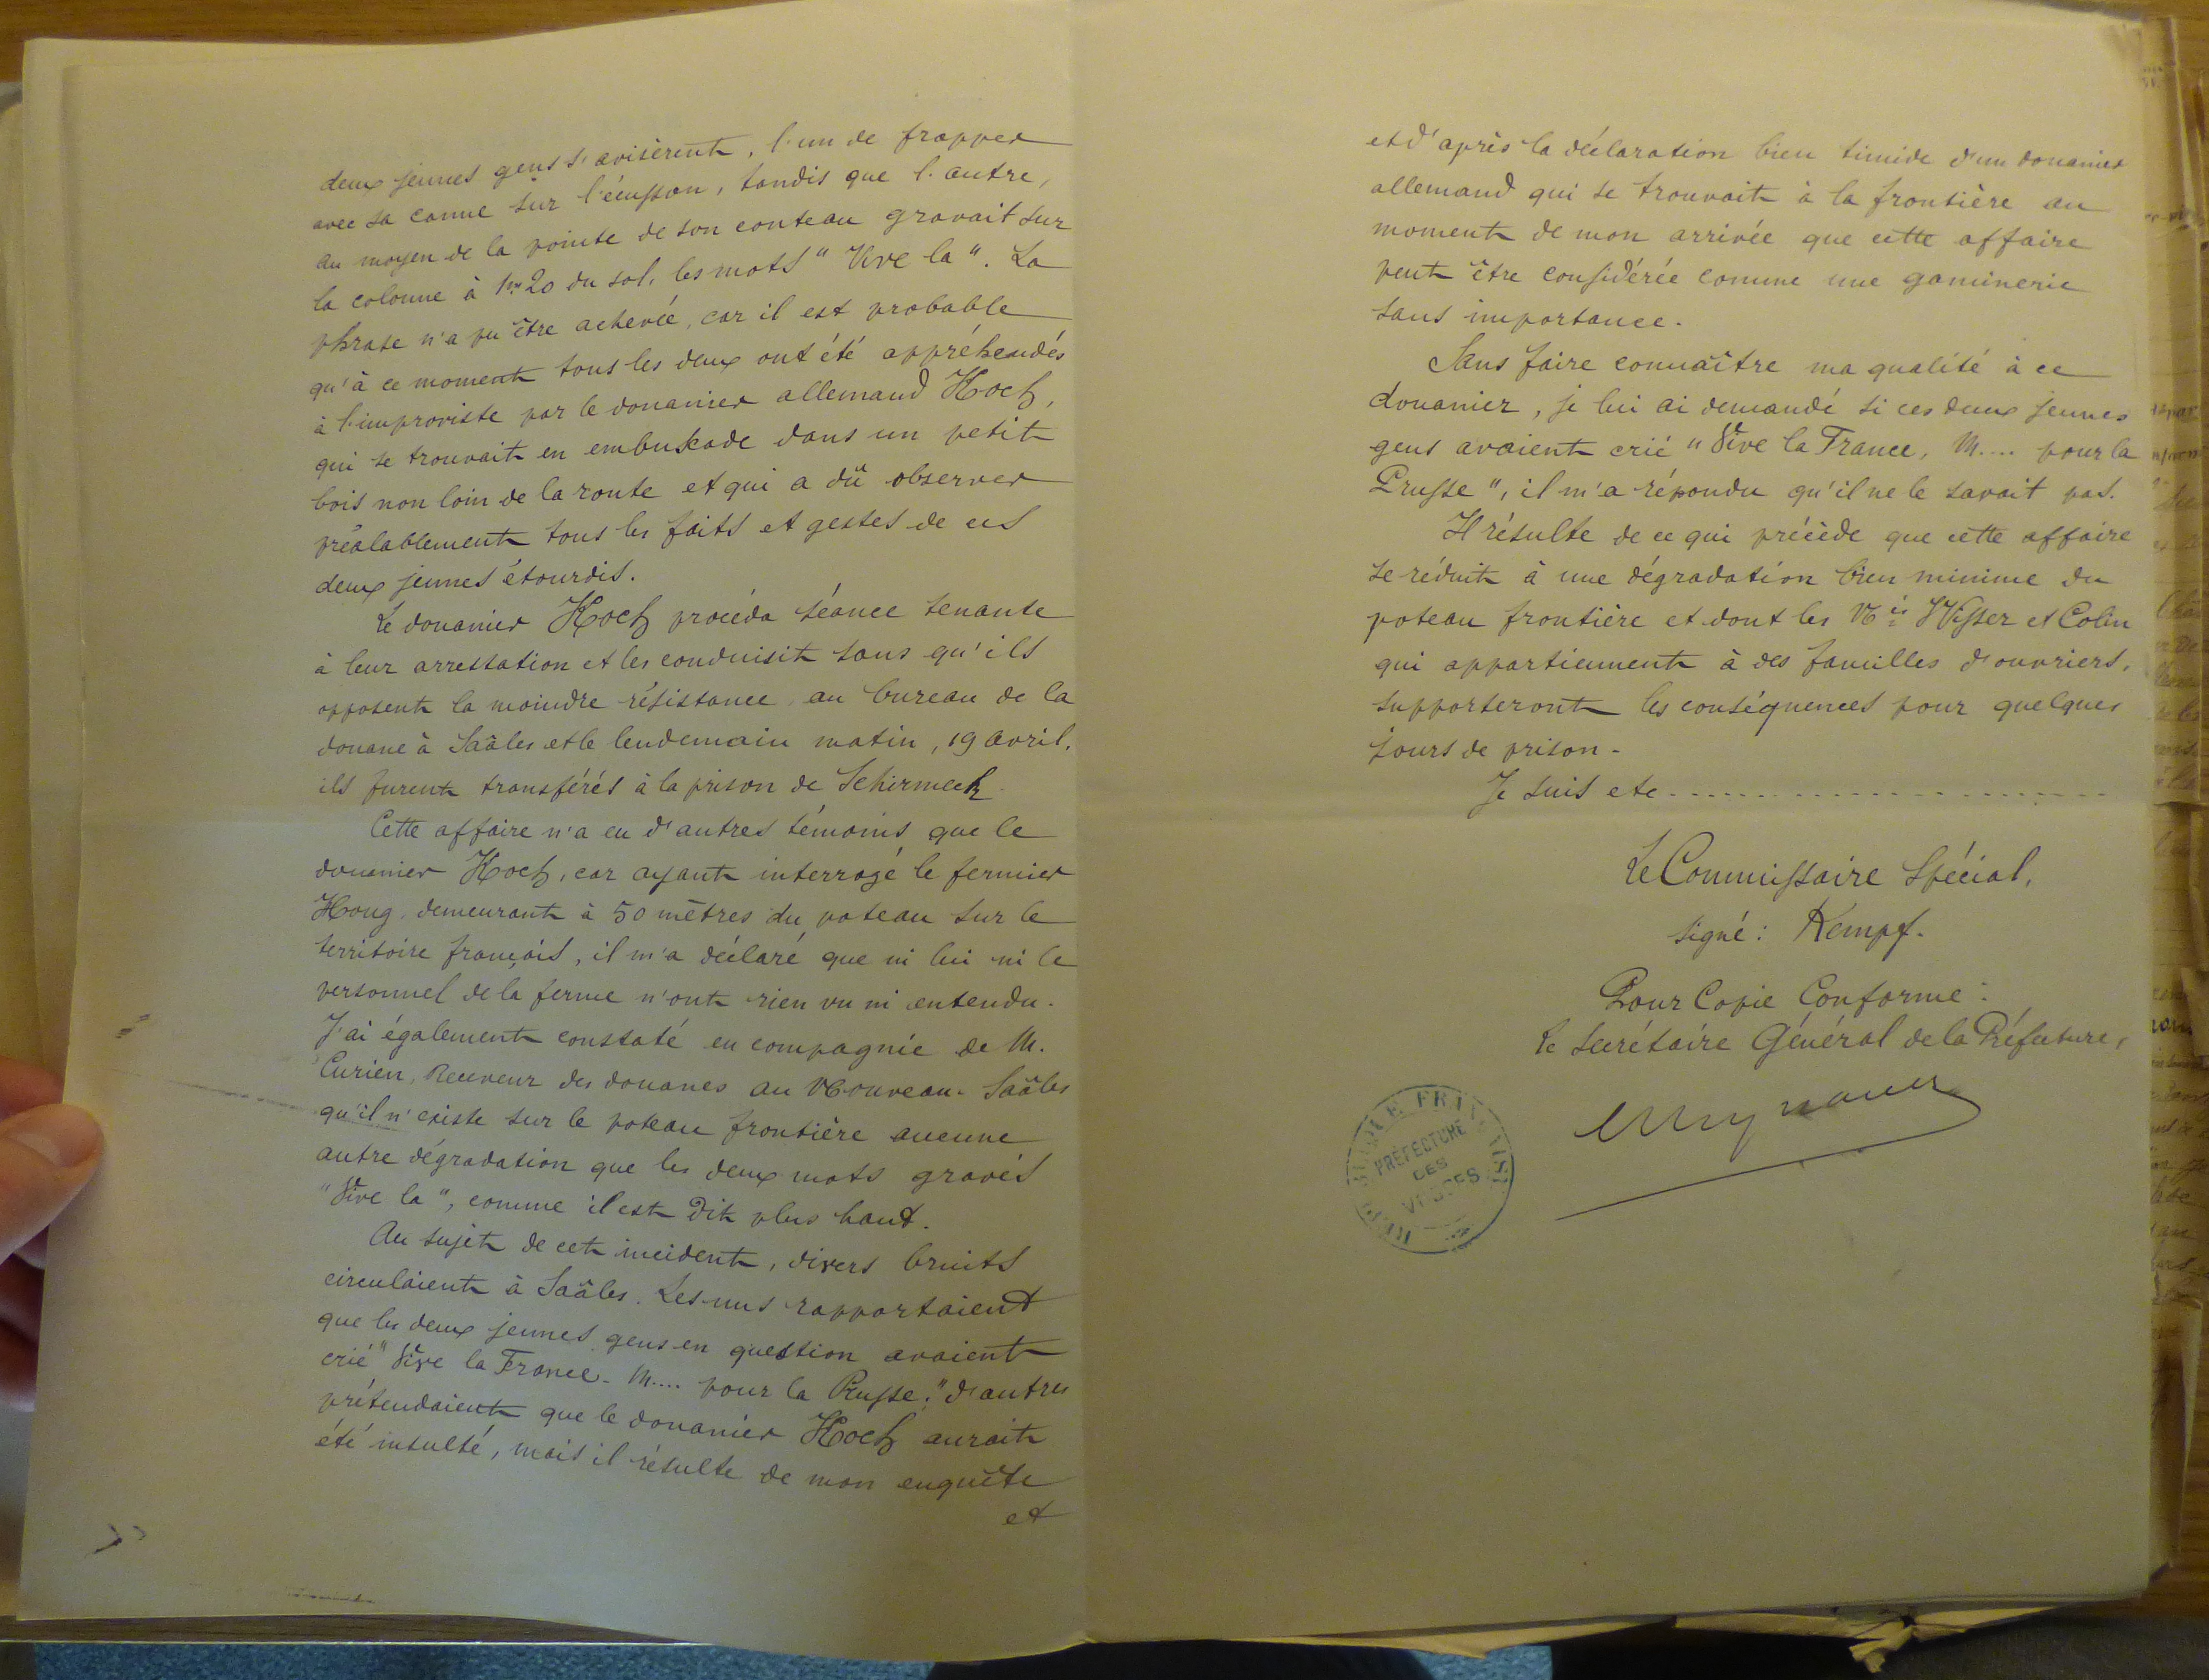 deux jeunes gens s'avisèrent, l'un de frapper
avec sa canne sur l'écusson, tandis que l'autre,
au moyen de la pointe de son couteau gravait sur
la colonne à 1m20 du sol, les mots " Vive la ". La
phrase n'a pu être achevée, car il est probable
qu'à ce moment tous les deux ont été appréhendés
à l'improviste par le douanier allemand Koch,
qui se trouvait en embuscade dans un petit
bois non loin de la route et qui a dû observer
préalablement tous les faits et gestes de ces
deux jeunes étourdis.
Le douanier Koch procéda séance tenante
à leur arrestation et les conduisit sans qu'ils
opposent la moindre résistance au bureau de la
douane à Saâles et le lendemain matin, 19 avril,
ils furent transférés à la prison de Schirmeck.
Cette affaire n'a eu d'autres témoins que le
douanier Koch, car ayant interrogé le fermier
Houg, demeurant à 50 mètres du poteau sur le
territoire français, il m'a déclaré que ni lui ni le
personnel de la ferme n'ont rien vu ni entendu.
J'ai également constaté en compagnie de M.
Curien, Receveur des douanes au Nouveau-Saâles
qu'il n'existe sur le poteau frontière aucune
autre dégradation que les deux mots gravés
" Vive la ", comme il est dit plus haut.
Au sujet de cet incident, divers bruits
circulaient à Saâles. Les uns rapportaient
que les deux jeunes gens en question avaient
crié " Vive la France - M.... pour la Prusse ;" d'autres
prétendaient que le douanier Koch aurait
été insulté, mais il résulte de mon enquête
et
et d'après la déclaration bien timide d'un douanier
allemand qui se trouvait à la frontière au
moment de mon arrivée que cette affaire
peut être considérée comme une gaminerie
sans importance.
Sans faire connaître ma qualité à ce
douanier, je lui ai demandé si ces deux jeunes
gens avaient crié " Vive la France, M.... pour la
Prusse ", il m'a répondu qu'il ne le savait pas.
Il résulte de ce qui précède que cette affaire
se réduit à une dégradation bien minime du
poteau frontière et dont les Nés Wisser et Colin
qui appartiennent à des familles d'ouvriers,
supporteront les conséquences pour quelques
jours de prison -
Je suis etc....................
Le Commissaire Spécial,
signé : Kempf.
Pour Copie Conforme :
Le Secrétaire Général de la Préfecture,
PRÉFECTURE
DES
VOSGES